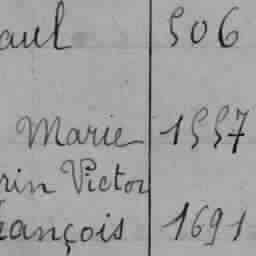 aul 506
Marie 1557
rin Victor
rançois 1691